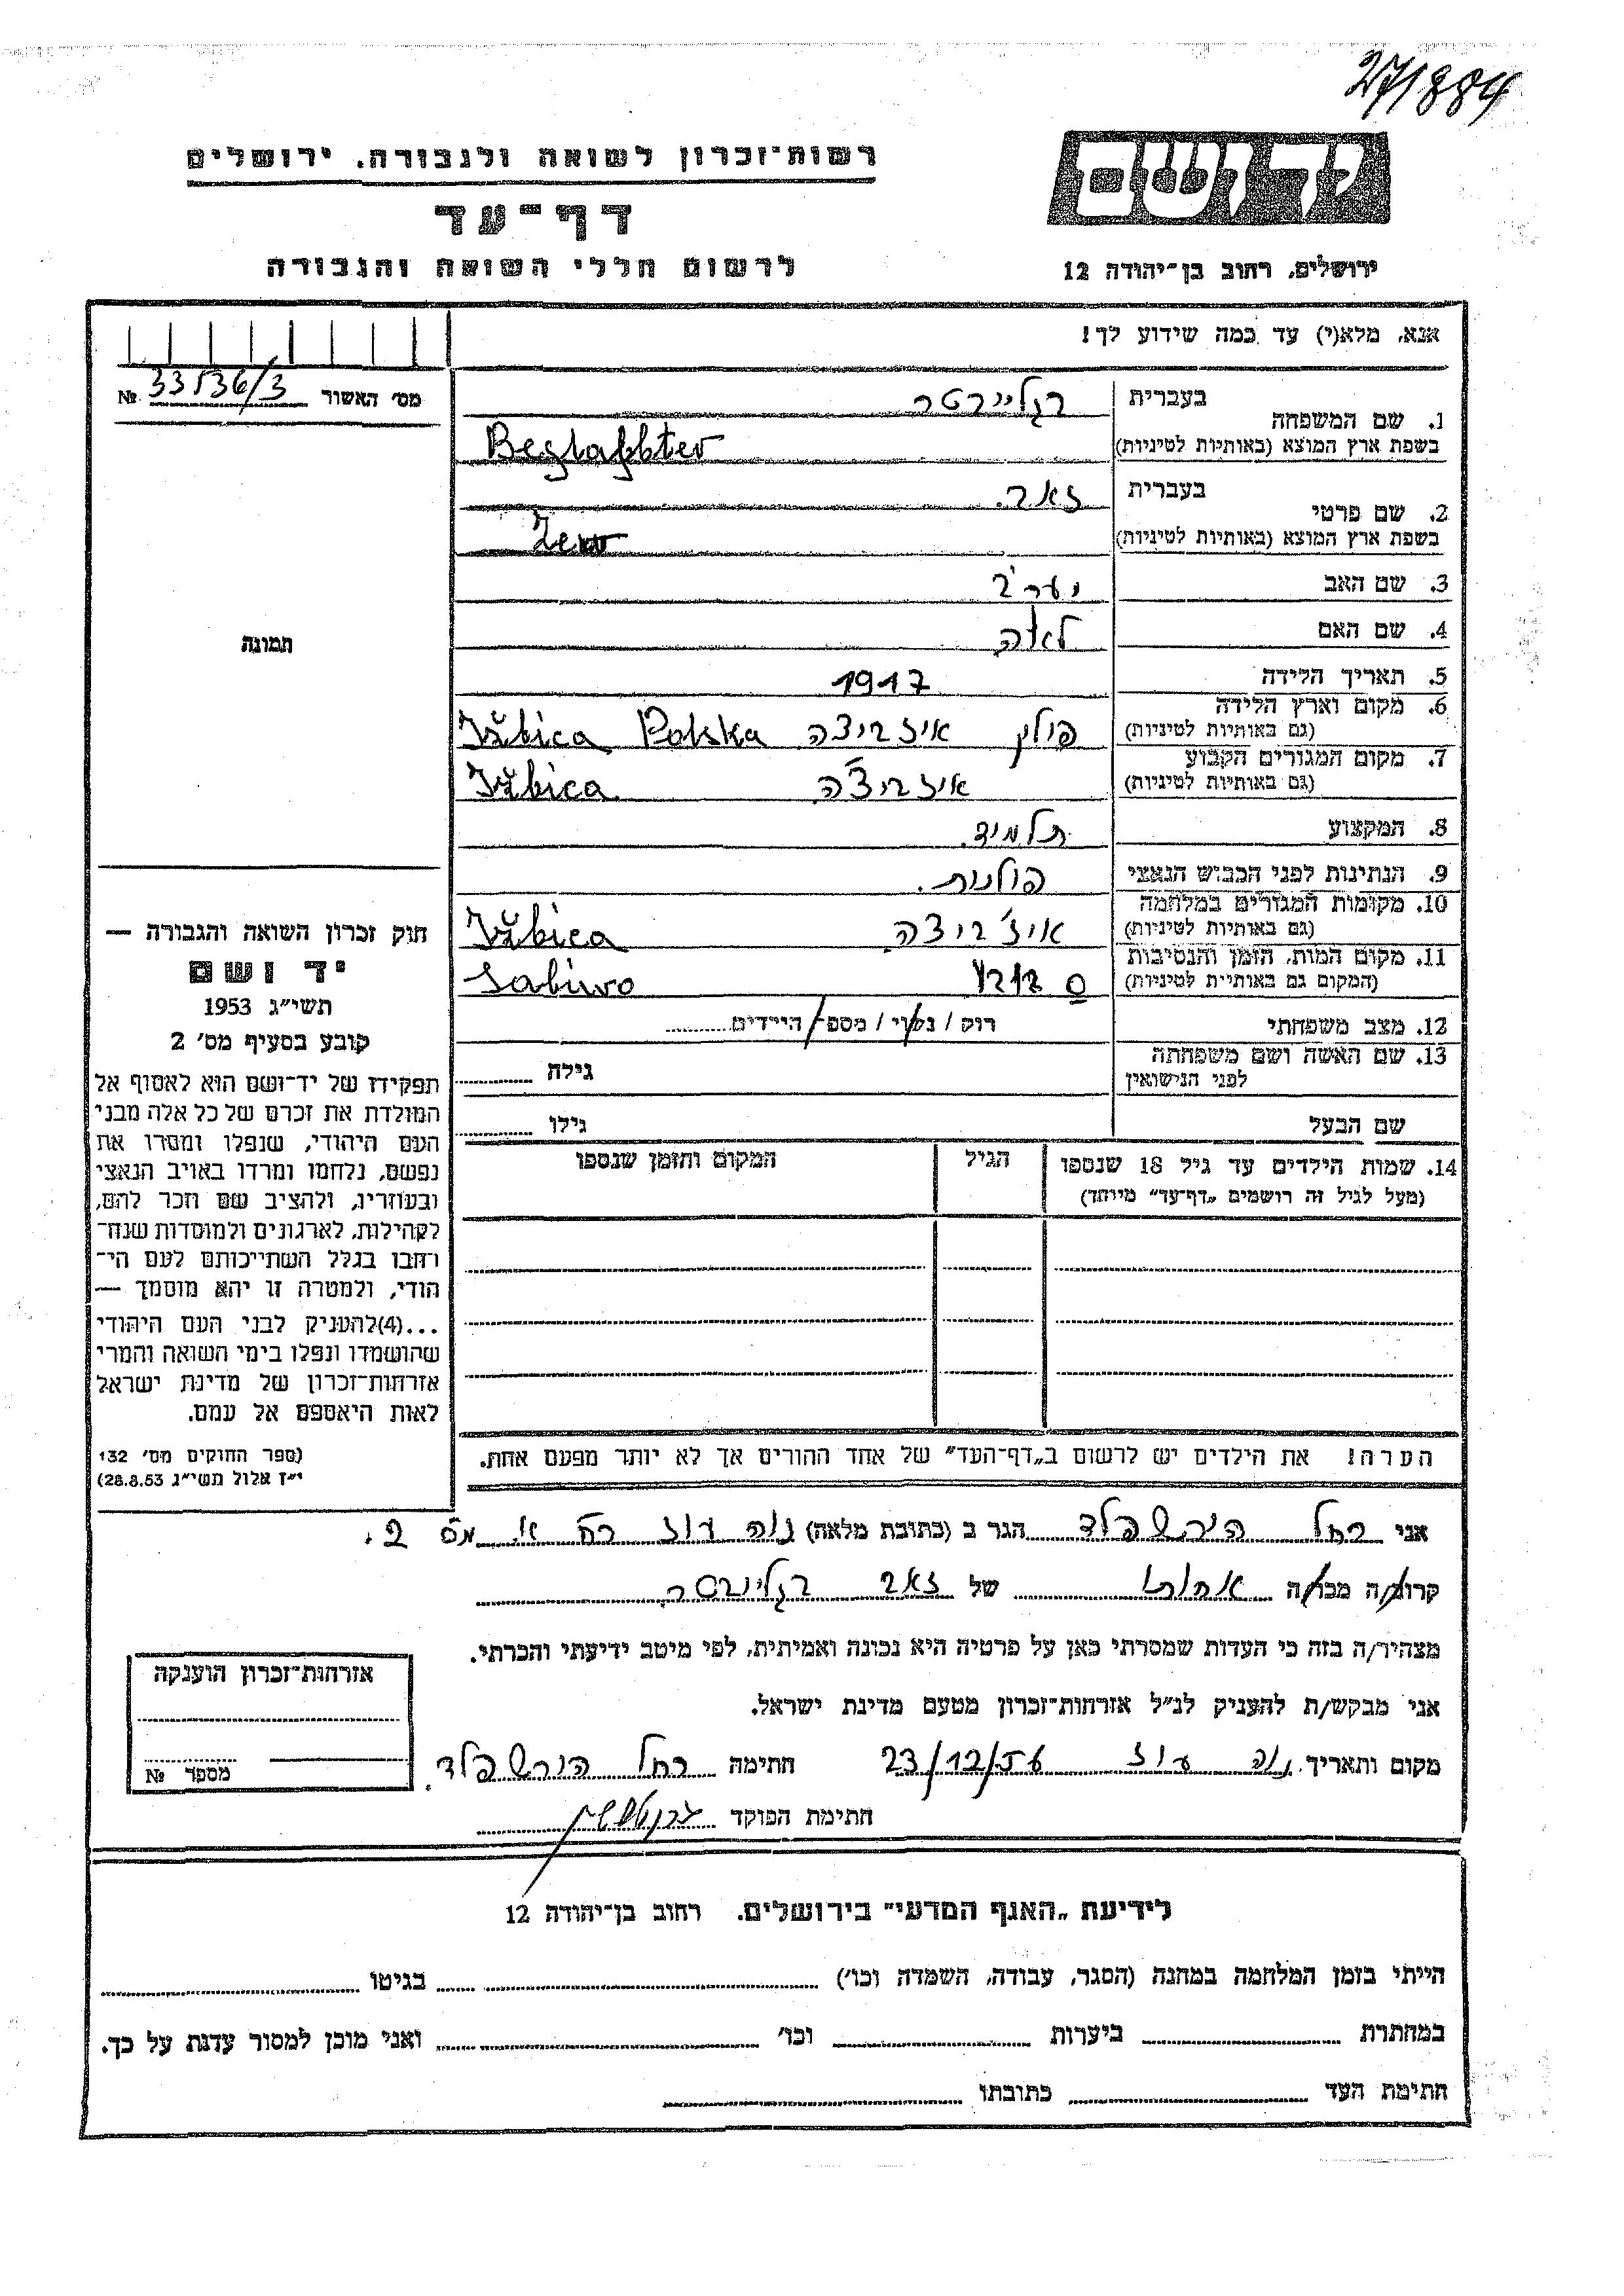 27/884
יד ושם
רשות־זכרון לשואה ולגבורה. ירושלים
דף־עד
לרשום חללי השואה והגבורה
ירושלים, רחוב בן־יהודה 12
אנא, מלא(י) עד כמה שידוע לך!
מס׳ האשור 33536/3 №
1. שם המשפחה בעברית
בשפת ארץ המוצא (באותיות לטיניות)
2. שם פרטי בעברית זאב.
בשפת ארץ המוצא (באותיות לטיניות) Zew
3. שם האב
4. שם האם לאה
5. תאריך הלידה 1917
6. מקום וארץ הלידה פולין איזביצה Polska Iżbica
(גם באותיות לטיניות)
7. מקום המגורים הקבוע איזביצה Iżbica
(גם באותיות לטיניות)
8. המקצוע תלמיד.
9. הנתינות לפני הכבוש הנאצי פולנית.
10. מקומות המגורים במלחמה איז׳ביצה Iżbica
(גם באותיות לטיניות)
11. מקום המות, הזמן והנסיבות
(המקום גם באותיות לטיניות)
12. מצב משפחתי רוק / נשוי / מספר הילדים
13. שם האשה ושם משפחתה גילה
לפני הנישואין
שם הבעל גילו
14. שמות הילדים עד גיל 18 שנספו הגיל המקום והזמן שנספו
(מעל לגיל זה רושמים „דף־עד״ מיוחד)
הערה! את הילדים יש לרשום ב„דף־העד״ של אחד ההורים אך לא יותר מפעם אחת.
תמונה
חוק זכרון השואה והגבורה —
יד ושם
תשי״ג 1953
קובע בסעיף מס׳ 2
תפקידו של יד־ושם הוא לאסוף אל
המולדת את זכרם של כל אלה מבני
העם היהודי, שנפלו ומסרו את
נפשם, נלחמו ומרדו באויב הנאצי
ובעוזריו, ולהציב שם וזכר להם,
לקהילות, לארגונים ולמוסדות שנח־
רבו בגלל השתייכותם לעם הי־
הודי, ולמטרה זו יהא מוסמך —
...(4)להעניק לבני העם היהודי
שהושמדו ונפלו בימי השואה והמרי
אזרחות־זכרון של מדינת ישראל
לאות היאספם אל עמם.
(ספר החוקים מס׳ 132
י״ז אלול תשי״ג 28.8.53)
אני רחל הירשפלד הגר ב (כתובת מלאה) נוה עוז
קרוב/ה מכר/ה אחותו של זאב
מצהיר/ה בזה כי העדות שמסרתי כאן על פרטיה היא נכונה ואמיתית, לפי מיטב ידיעתי והכרתי.
אני מבקש/ת להעניק לנ״ל אזרחות־זכרון מטעם מדינת ישראל.
מקום ותאריך נוה עוז 23/12/56 חתימה רחל הירשפלד.
חתימת הפוקד
אזרחות־זכרון הוענקה
מספר №
לידיעת „האגף המדעי״ בירושלים. רחוב בן־יהודה 12
הייתי בזמן המלחמה במחנה (הסגר, עבודה, השמדה וכו׳) בגיטו
במחתרת ביערות וכו׳ ואני מוכן למסור עדות על כך.
חתימת העד כתובתו